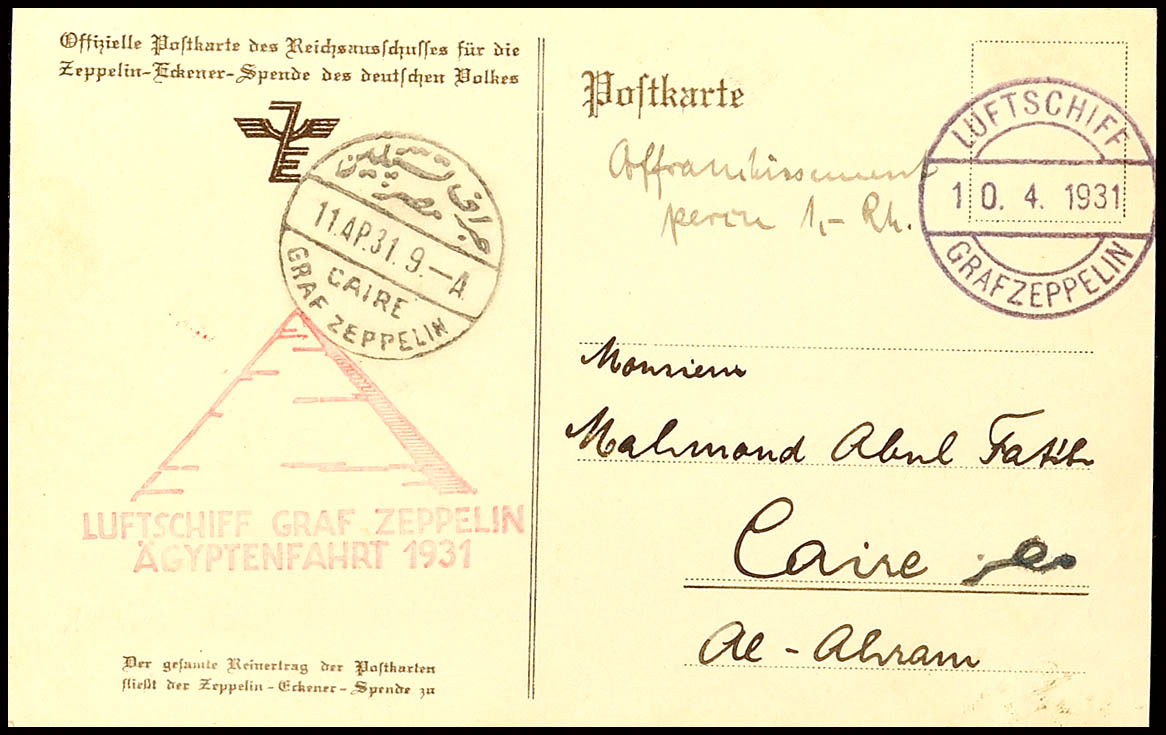 Offizielle Postkarte des Reichsausschusses für die
Zeppelin-Eckener-Spende des deutschen Volkes
ZE
CAIRE
GRAF ZEPPELIN
11.AP.31.9.—A.
LUFTSCHIFF GRAF ZEPPELIN
ÄGYPTENFAHRT 1931
Der gesamte Reinertrag der Postkarten
fließt der Zeppelin-Eckener-Spende zu
Postkarte
LUFTSCHIFF
10.4.1931
GRAF ZEPPELIN
Affranchissement
1,- Rh.
Monsieur
Mahmoud Abul Fath
Caire مصر
Al-Ahram